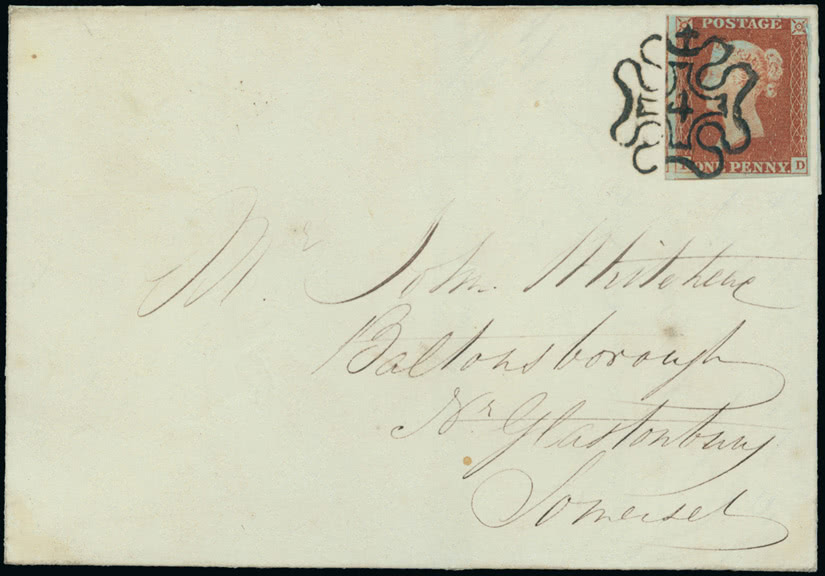 POSTAGE
4
ONE PENNY. D
Mr John
Baltonsborough
Nr Glastonbury
Somerset